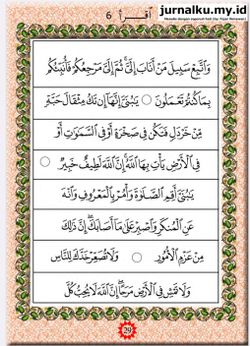 jurnalku.my.id
اقرأ 6
وَاتَّبِعْ سَبِيلَ مَنْ أَنَابَ إِلَيَّ ثُمَّ إِلَيَّ مَرْجِعُكُمْ فَأُنَبِّئُكُمْ
بِمَا كُنْتُمْ تَعْمَلُونَ ○ يٰبُنَيَّ إِنَّهَا إِنْ تَكُ مِثْقَالَ حَبَّةٍ
مِّنْ خَرْدَلٍ فَتَكُنْ فِي صَخْرَةٍ أَوْ فِي السَّمٰوَاتِ أَوْ
فِي الْأَرْضِ يَأْتِ بِهَا اللهُ إِنَّ اللهَ لَطِيفٌ خَبِيرٌ
يٰبُنَيَّ أَقِمِ الصَّلٰوةَ وَأْمُرْ بِالْمَعْرُوفِ وَانْهَ
عَنِ الْمُنْكَرِ وَاصْبِرْ عَلَى مَا أَصَابَكَ إِنَّ ذٰلِكَ
مِنْ عَزْمِ الْأُمُورِ ○ وَلَا تُصَعِّرْ خَدَّكَ لِلنَّاسِ
وَلَا تَمْشِ فِي الْأَرْضِ مَرَحًا إِنَّ اللهَ لَا يُحِبُّ كُلَّ
29